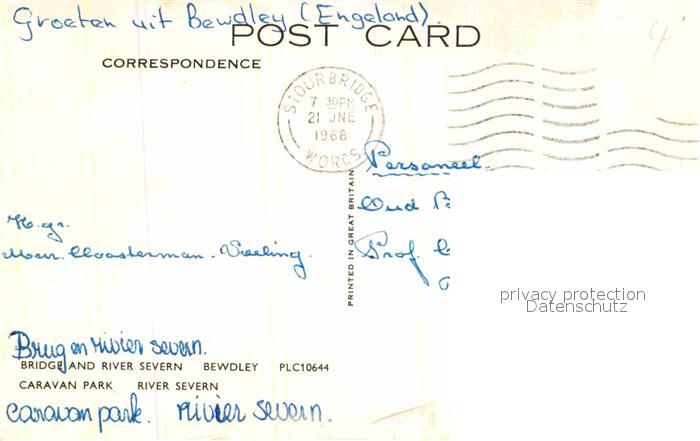 Groeten uit Bewdley (Engeland).
POST CARD
CORRESPONDENCE
STOURBRIDGE
7 30PM
21 JNE
1968
WORCS
Personeel
Oud B
Prof. C
PRINTED IN GREAT BRITAIN
H.gr.
privacy protection
Datenschutz
Brug en rivier severn.
BRIDGE AND RIVER SEVERN BEWDLEY PLC10644
CARAVAN PARK RIVER SEVERN
caravanpark. rivier severn.